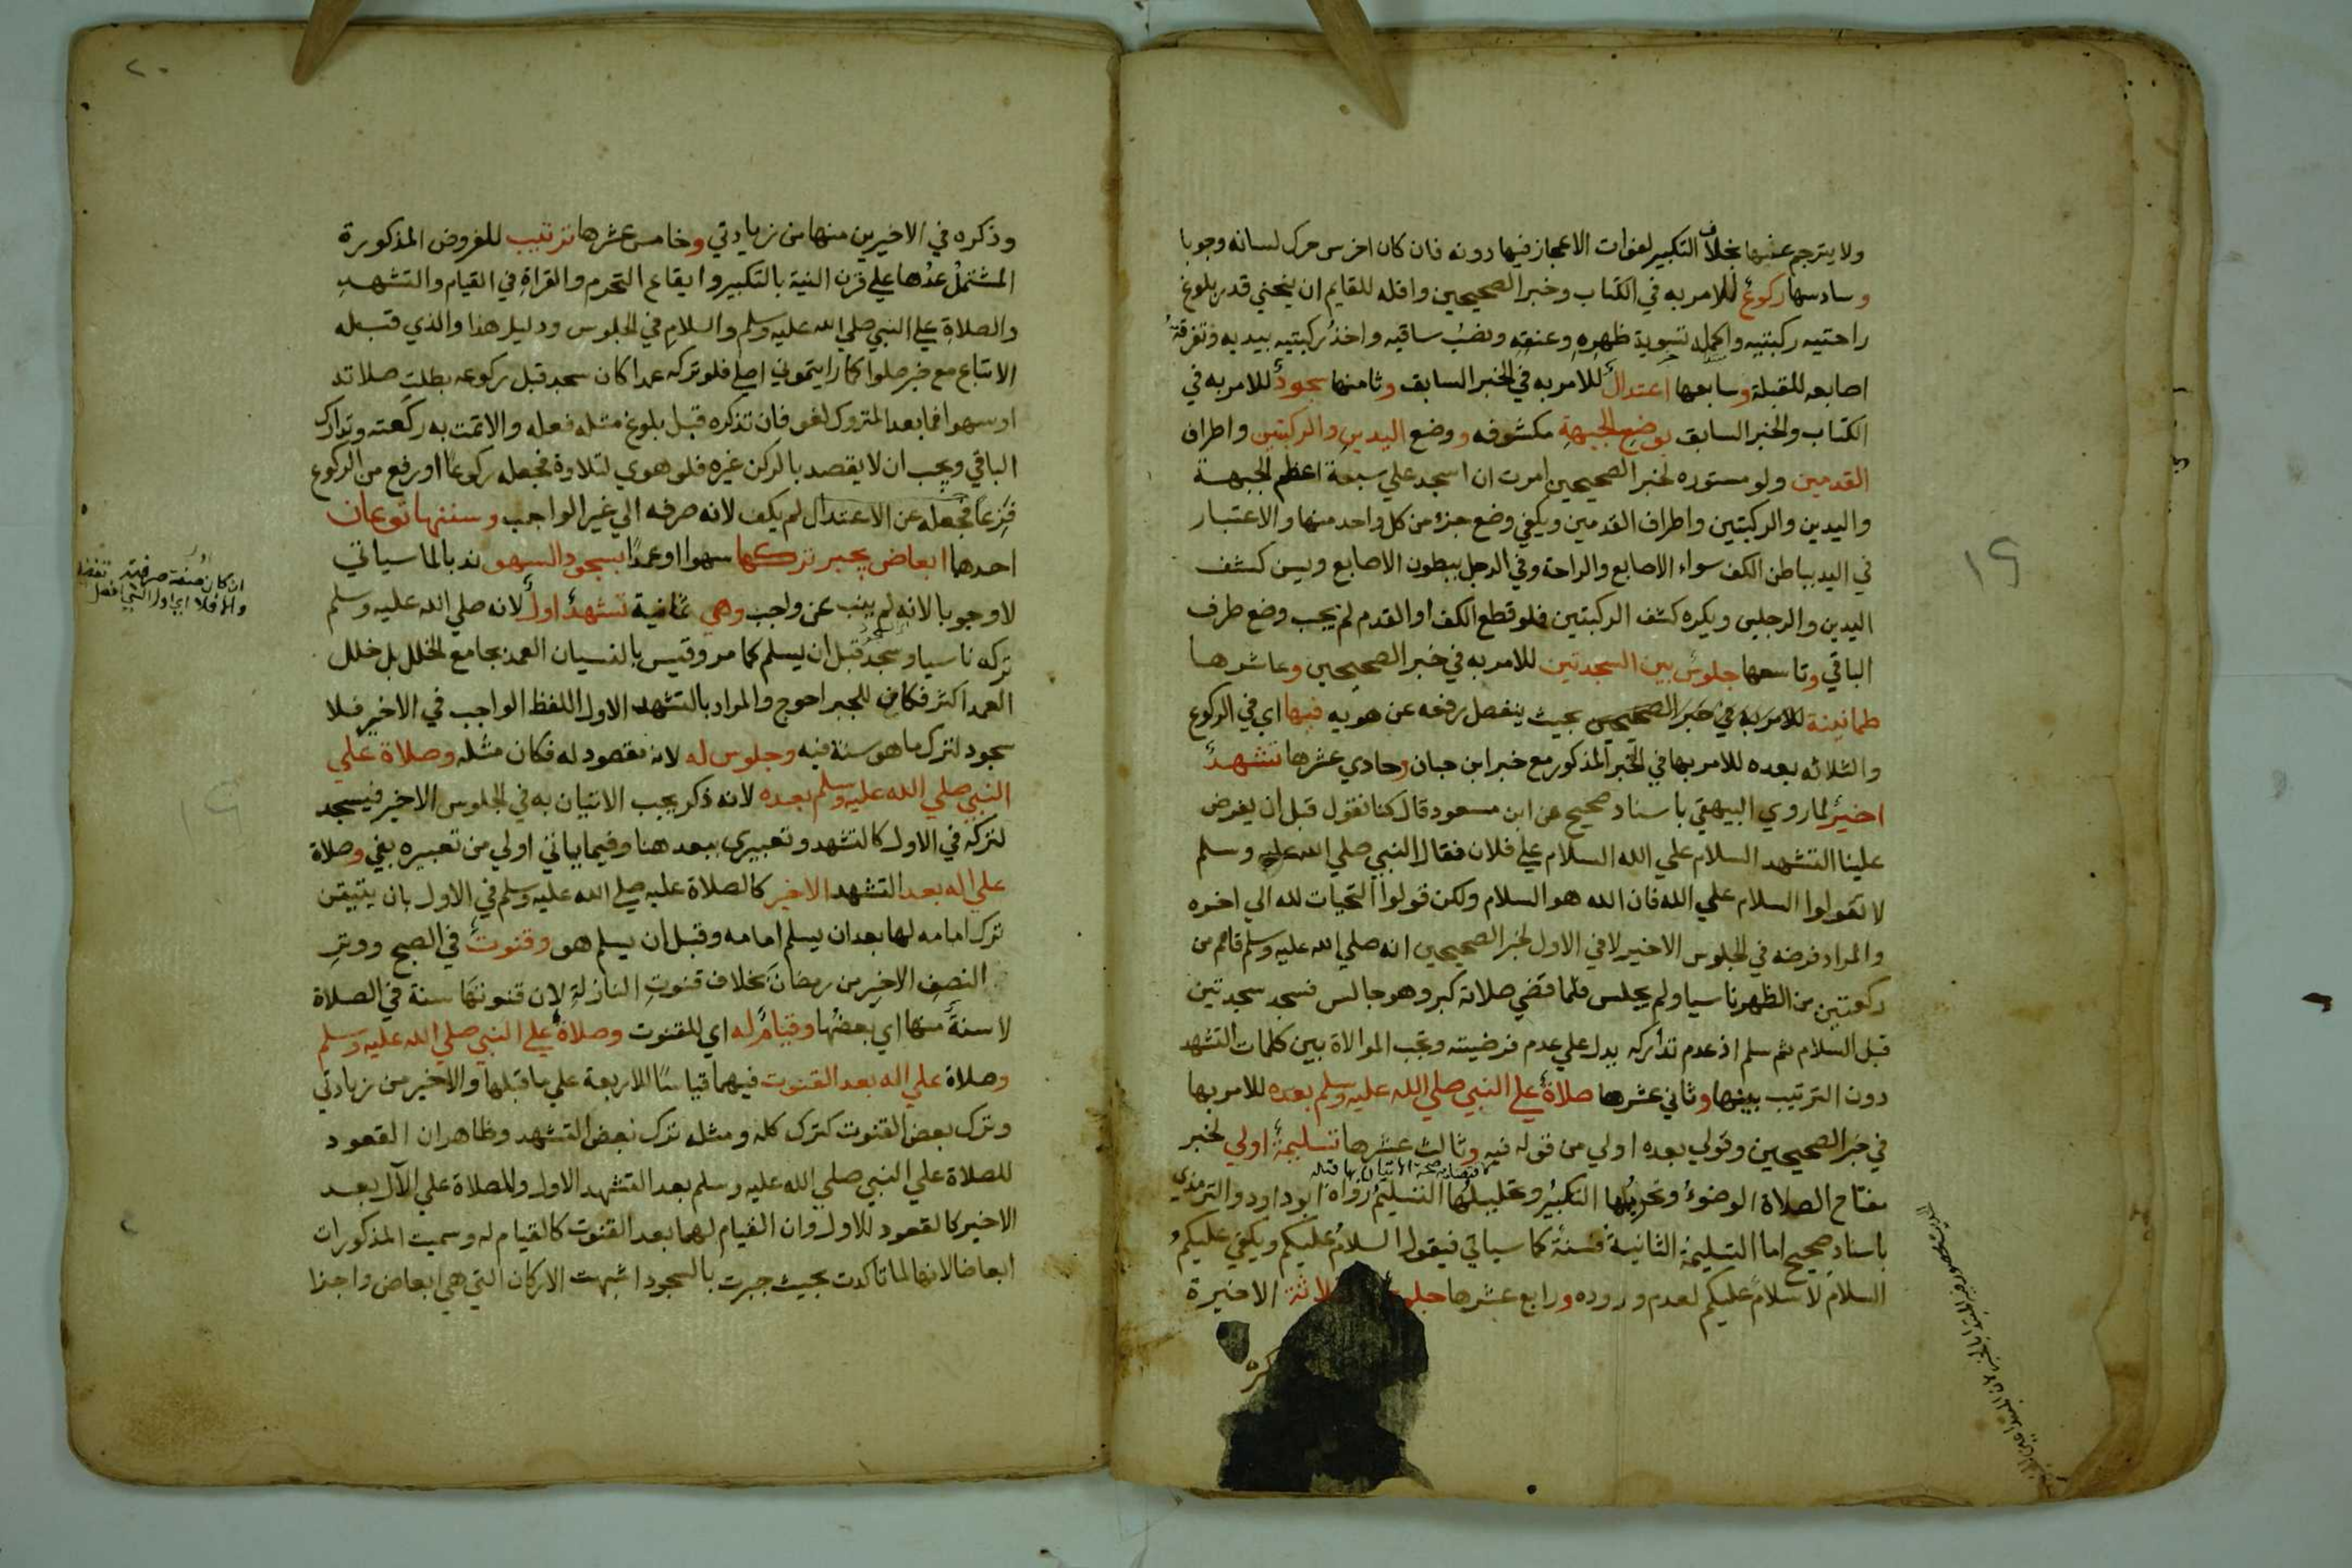 ولا يترجم عنها بخلاف التكبير لفوات الاعجاز فيها دونه فان كان اخرس حرك لسانه وجوبا
وسادسها ركوع للامر به في الكتاب وخبر الصحيحين واقله للقايم ان ينحني قدر بلوغ
راحتيه ركبتيه واكمله تسوية ظهره وعنقه ونصب ساقيه واخذ ركبتيه بيديه وتفرقة
اصابعه للقبلة وسابعها اعتدال للامر به في الخبر السابق وثامنها سجود للامر به في
الكتاب والخبر السابق بوضع الجبهة مكشوفه ووضع اليدين والركبتين واطراف
القدمين ولو مستوره لخبر الصحيحين امرت ان اسجد علي سبعة اعظم الجبهة
واليدين والركبتين واطراف القدمين ويكفي وضع جزء من كل واحد منها والاعتبار
في اليد بباطن الكف سواء الاصابع والراحة وفي الرجل ببطون الاصابع ويسن كشف
اليدين والرجلين ويكره كشف الركبتين فلو قطع الكف او القدم لم يجب وضع طرف
الباقي وتاسعها جلوس بين السجدتين للامر به في خبر الصحيحين وعاشرها
طمانينة للامر بها في خبر الصحيحين بحيث ينفصل رفعه عن هويه فيها اي في الركوع
والثلاثه بعده للامر بها في الخبر المذكور مع خبر ابن حبان وحادي عشرها تشهد
اخير لما روي البيهقي باسناد صحيح عن ابن مسعود قال كنا نقول قبل ان يفرض
علينا التشهد السلام علي الله السلام علي فلان فقال النبي صلي الله عليه وسلم
لا تقولوا السلام علي الله فان الله هو السلام ولكن قولوا التحيات لله الي اخره
والمراد فرضه في الجلوس الاخير لا في الاول لخبر الصحيحين انه صلي الله عليه وسلم قام من
ركعتين من الظهر ناسيا ولم يجلس فلما قضي صلاته كبر وهو جالس فسجد سجدتين
قبل السلام ثم سلم اذ عدم تداركه يدل علي عدم فرضيته وتجب الموالاة بين كلمات التشهد
دون الترتيب بينها وثاني عشرها صلاة علي النبي صلي الله عليه وسلم بعده للامر بها
في خبر الصحيحين وقولي بعده اولي من قوله فيه وثالث عشرها تسليمة اولي لخبر
مفتاح الصلاة الوضوء وتحريمها التكبير وتحليلها التسليم رواه ابو داود والترمذي
باسناد صحيح اما التسليمة الثانية فسنة كما سياتي فيقول السلام عليكم ويكفي عليكم
السلام لا سلام عليكم لعدم وروده ورابع عشرها الاخيرة
١٩
٢٠
وذكره في الاخيرين منها من زيادتي وخامس عشرها ترتيب للفروض المذكورة
المشتمل عدها علي قرن النية بالتكبير وايقاع التحرم والقراة في القيام والتشهد
والصلاة علي النبي صلي الله عليه وسلم والسلام في الجلوس ودليل هذا والذي قبله
الاتباع مع خبر صلوا كما رايتموني اصلي فلو تركه عمدا كان سجد قبل ركوعه بطلت صلاته
او سهوا فما بعد المتروك لغو فان تذكره قبل بلوغ مثله فعله والا تمت به ركعته وتدارك
الباقي ويجب ان لا يقصد بالركن غيره فلو هوي لتلاوة فجعله ركوعا او رفع من الركوع
فزعا فجعله عن الاعتدال لم يكف لانه صرفه الي غير الواجب وسننها نوعان
احدهما ابعاض يجبر تركها سهوا او عمدا بسجود السهو ندبا لما سياتي
لا وجوبا لانه لم ينب عن واجب وهي ثمانية تشهد اول لانه صلي الله عليه وسلم
تركه ناسيا وسجد قبل ان يسلم كما مر وقيس بالنسيان العمد بجامع الخلل بل خلل
العمد اكثر فكان للجبر احوج والمراد بالتشهد الاول اللفظ الواجب في الاخير فلا
سجود لترك ما هو سنة فيه وجلوس له لانه مقصود له فكان مثله وصلاة علي
النبي صلي الله عليه وسلم بعده لانه ذكر يجب الاتيان به في الجلوس الاخير فيسجد
لتركه في الاول كالتشهد وتعبيري ببعد هنا وفيما ياتي اولي من تعبيره بفي وصلاة
علي اله بعد التشهد الاخير كالصلاة عليه صلي الله عليه وسلم في الاول بان يتيقن
ترك امامه لها بعد ان يسلم امامه وقبل ان يسلم هو وقنوت في الصبح ووتر
النصف الاخير من رمضان بخلاف قنوت النازلة لان قنوتها سنة في الصلاة
لا سنة منها اي بعضها وقيام له اي للقنوت وصلاة علي النبي صلي الله عليه وسلم
وصلاة علي اله بعد القنوت فيهما قياسا للاربعة علي ما قبلها والاخير من زيادتي
وترك بعض القنوت كترك كله ومثله ترك بعض التشهد وظاهر ان القعود
للصلاة علي النبي صلي الله عليه وسلم بعد التشهد الاول وللصلاة علي الآل بعد
الاخير كالقعود للاول وان القيام لهما بعد القنوت كالقيام له وسميت المذكورات
ابعاضا لانها لما تاكدت بحيث جبرت بالسجود اشبهت الاركان التي هي ابعاض واجزا